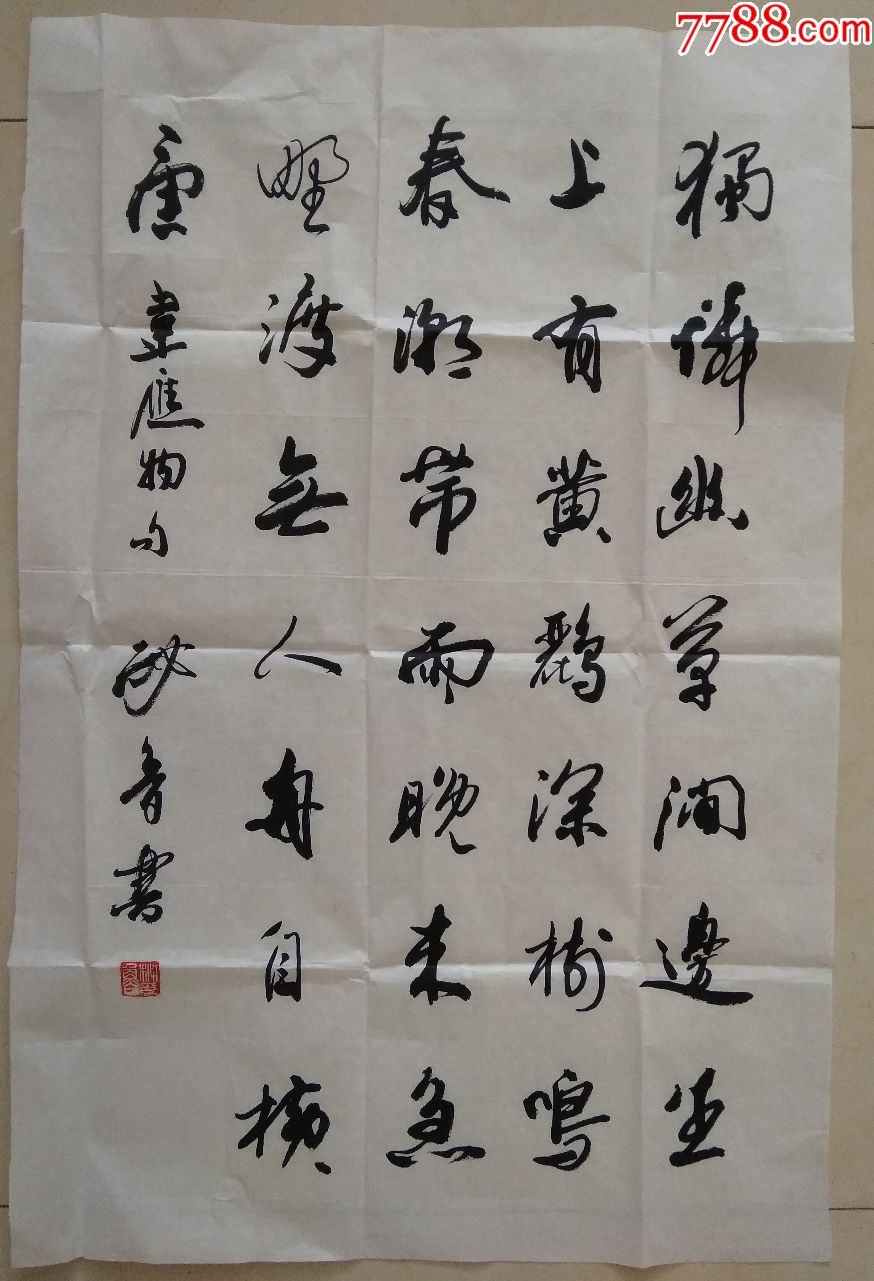 獨憐幽草澗邊生
上有黄鸝深樹鳴
春潮帶雨晚来急
野渡無人舟自横
韋應物句 音書
7788.com